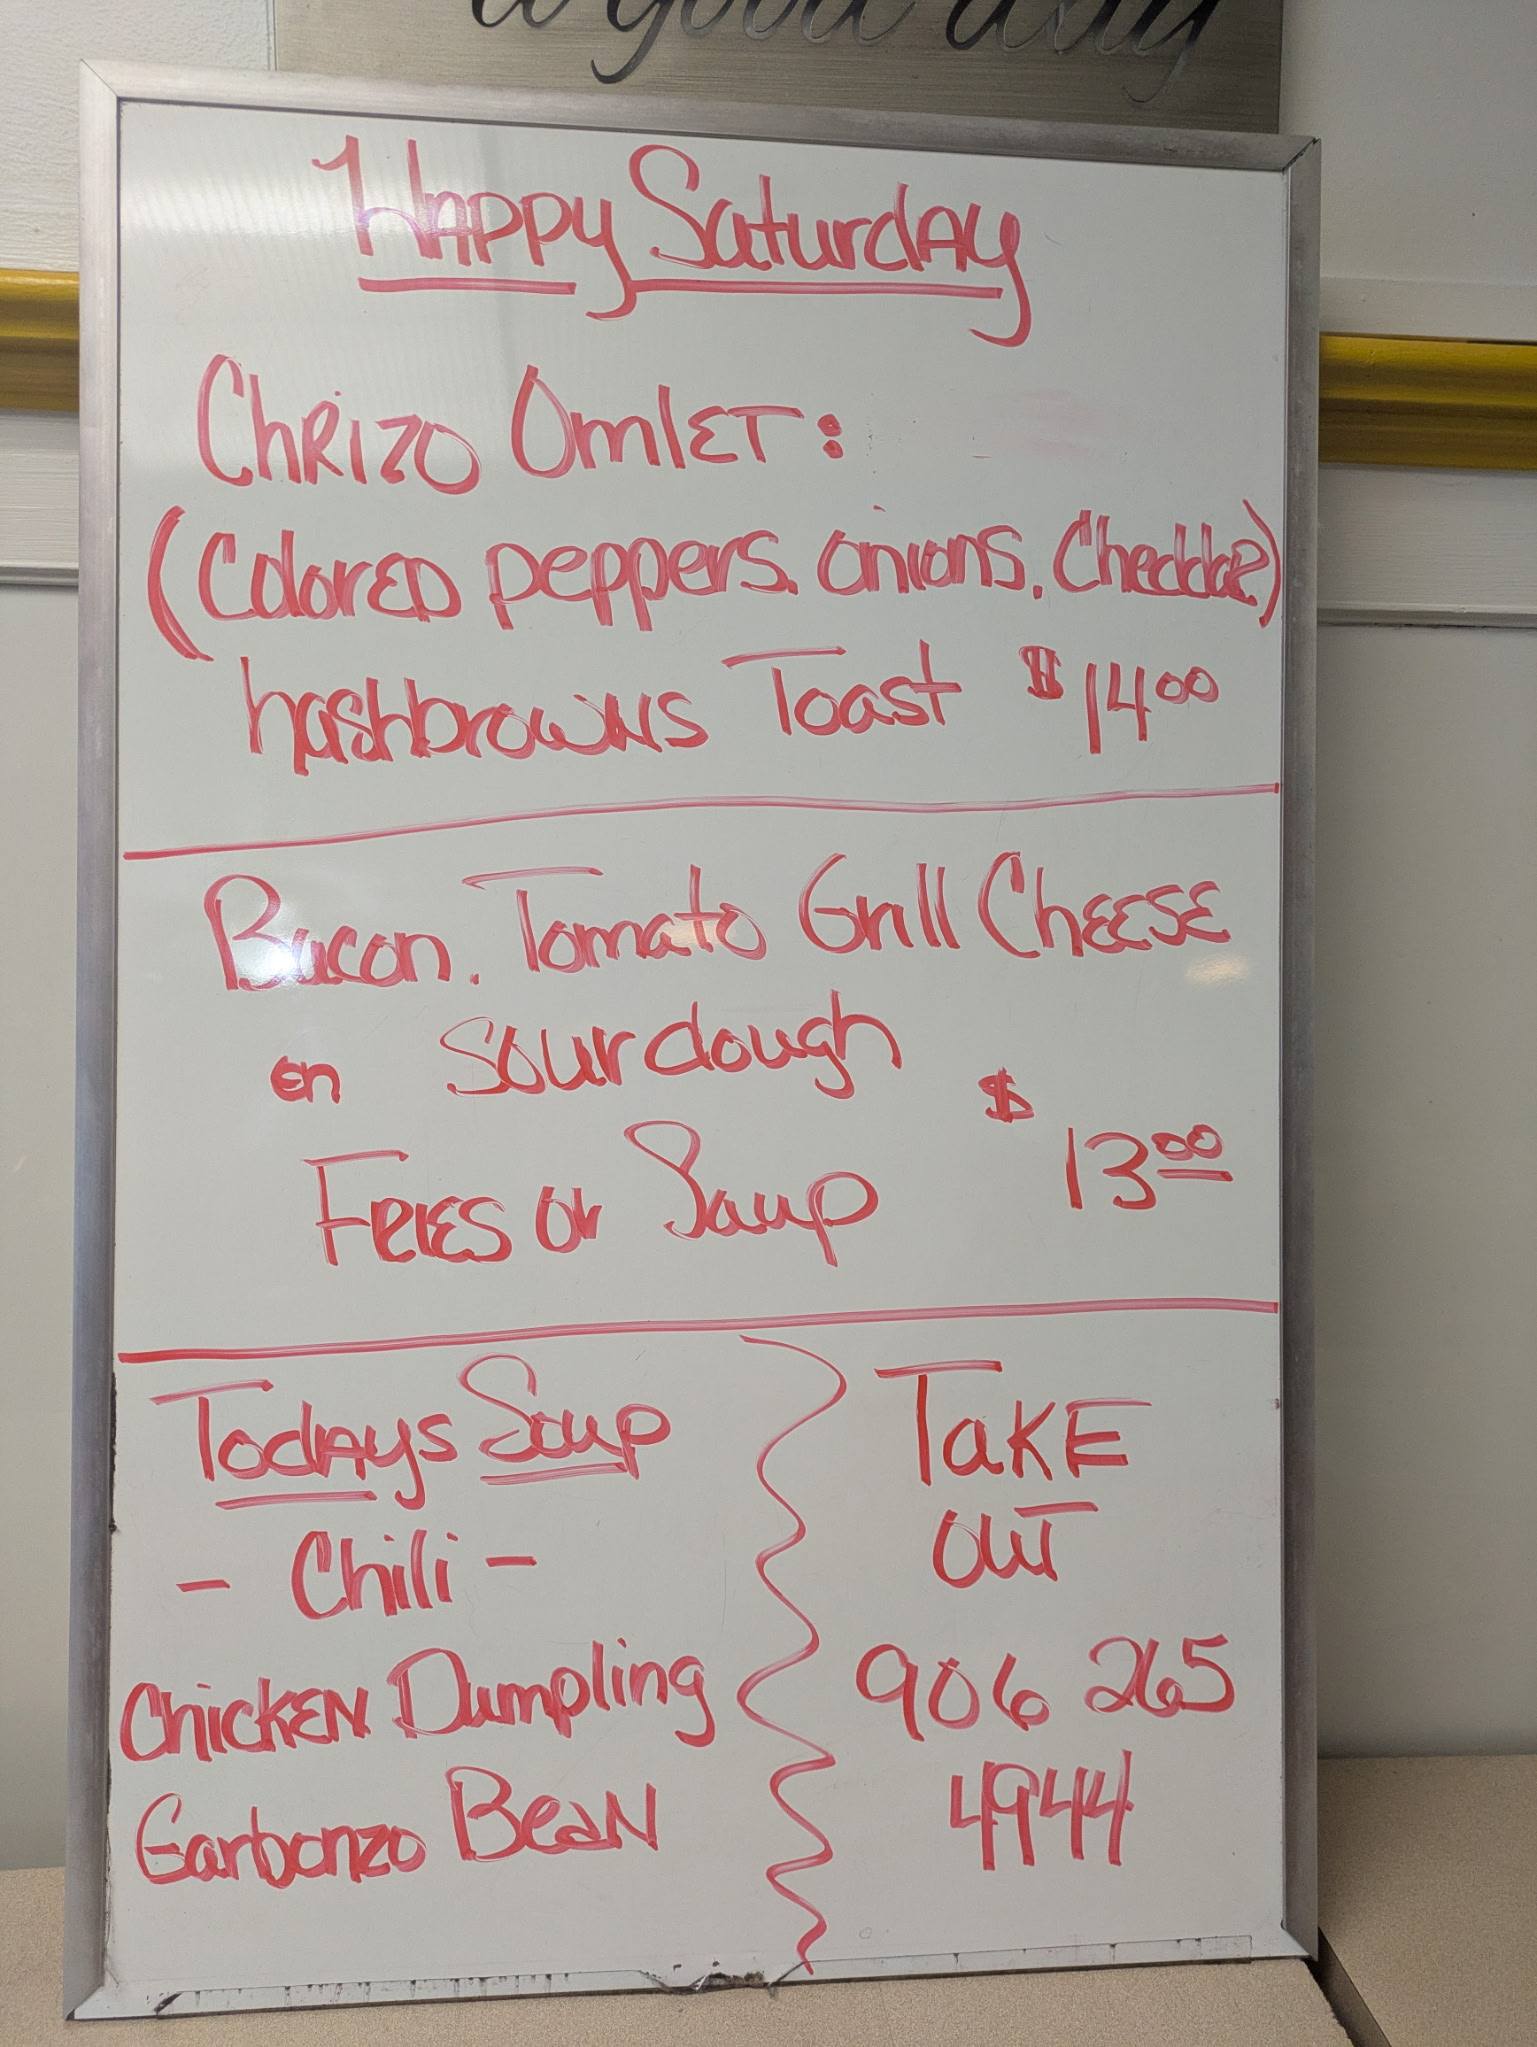 a good day
Happy Saturday
Chrizo Omlet:
(Colored peppers, onions, Cheddar)
hashbrowns Toast $14.00
Bacon, Tomato Grill Cheese
on Sourdough
Fries or Soup $13.00
Todays Soup
- Chili -
Chicken Dumpling
Garbonzo Bean
Take
out
906 265
4944